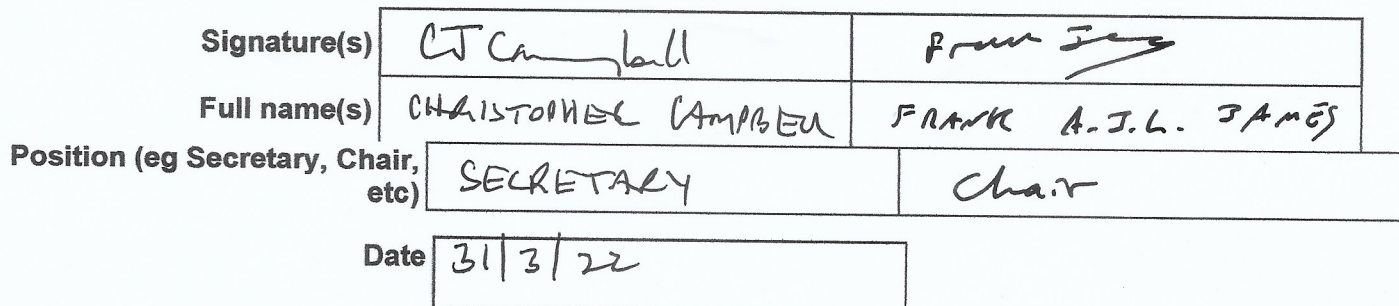 Signature(s) CJ Campbell Frank James
Full name(s) CHRISTOPHER CAMPBELL FRANK A.J.L. JAMES
Position (eg Secretary, Chair,
etc) SECRETARY Chair
Date 31/3/22